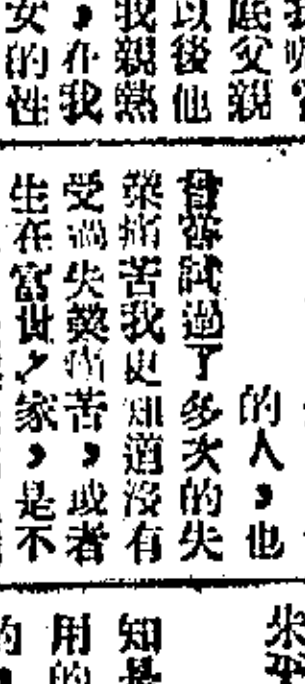 底父親
以後他
我親熱
，在我
女的性
的人，也
曾嘗試過了多次的失
業痛苦我更知道沒有
受過失業痛苦，或者
生在富世之家，是不
知是
用的
的